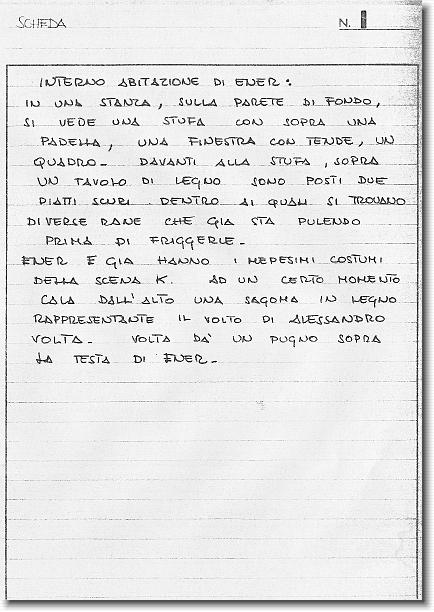 SCHEDA N. 1
INTERNO ABITAZIONE DI ENER:
IN UNA STANZA, SULLA PARETE DI FONDO,
SI VEDE UNA STUFA CON SOPRA UNA
PADELLA, UNA FINESTRA CON TENDE, UN
QUADRO- DAVANTI ALLA STUFA, SOPRA
UN TAVOLO DI LEGNO SONO POSTI DUE
PIATTI SCURI DENTRO AI QUALI SI TROVANO
DIVERSE RANE CHE GIA STA PULENDO
PRIMA DI FRIGGERLE-
ENER E GIA HANNO I MEDESIMI COSTUMI
DELLA SCENA K. AD UN CERTO MOMENTO
CALA DALL'ALTO UNA SAGOMA IN LEGNO
RAPPRESENTANTE IL VOLTO DI ALESSANDRO
VOLTA- VOLTA DA' UN PUGNO SOPRA
LA TESTA DI ENER-